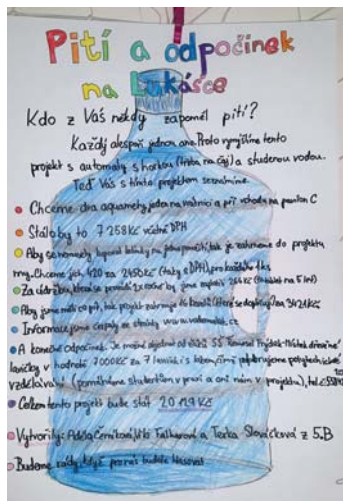 Pití a odpočinek
na Lukášce
Kdo z Vás někdy zapomněl pití?
Každý alespoň jednou ano. Proto vymýšlíme tento
projekt s automaty s horkou (třeba na čaj) a studenou vodou.
Teď Vás s tímto projektem seznámíme.
Chceme dva aquamety, jeden na vrátnici a při vchodu na pavilon C
Stálo by to 7 258 Kč včetně DPH
Aby se nemusely kupovat kelímky na jedno použití, tak je zahrneme do projektu
my. Chceme jich 420 za 2450Kč (taky s DPH), pro každého 1 ks
Za údržbu, která se provádí 2x ročně by jsme zaplatili 266 Kč
Aby jsme měli co pít, tak projekt zahrnuje barelů (které se doplňují) za 3421Kč
Informace jsme čerpaly ze stránky www.
A konečně odpočinek. Je možné objednat od žáků SŠ
lavičky v hodnotě 7000Kč za 7 laviček i s tabem, čímž podporujeme
vzdělávání (pomáháme studentům v praxi a oni nám v projektu), tel.č.
Celkem tento projekt bude stát 20 119 Kč
Vytvořily: Adéla Černíková, a Terka Slováčková z 5.B
Budeme rády, když pro nás budete hlasovat